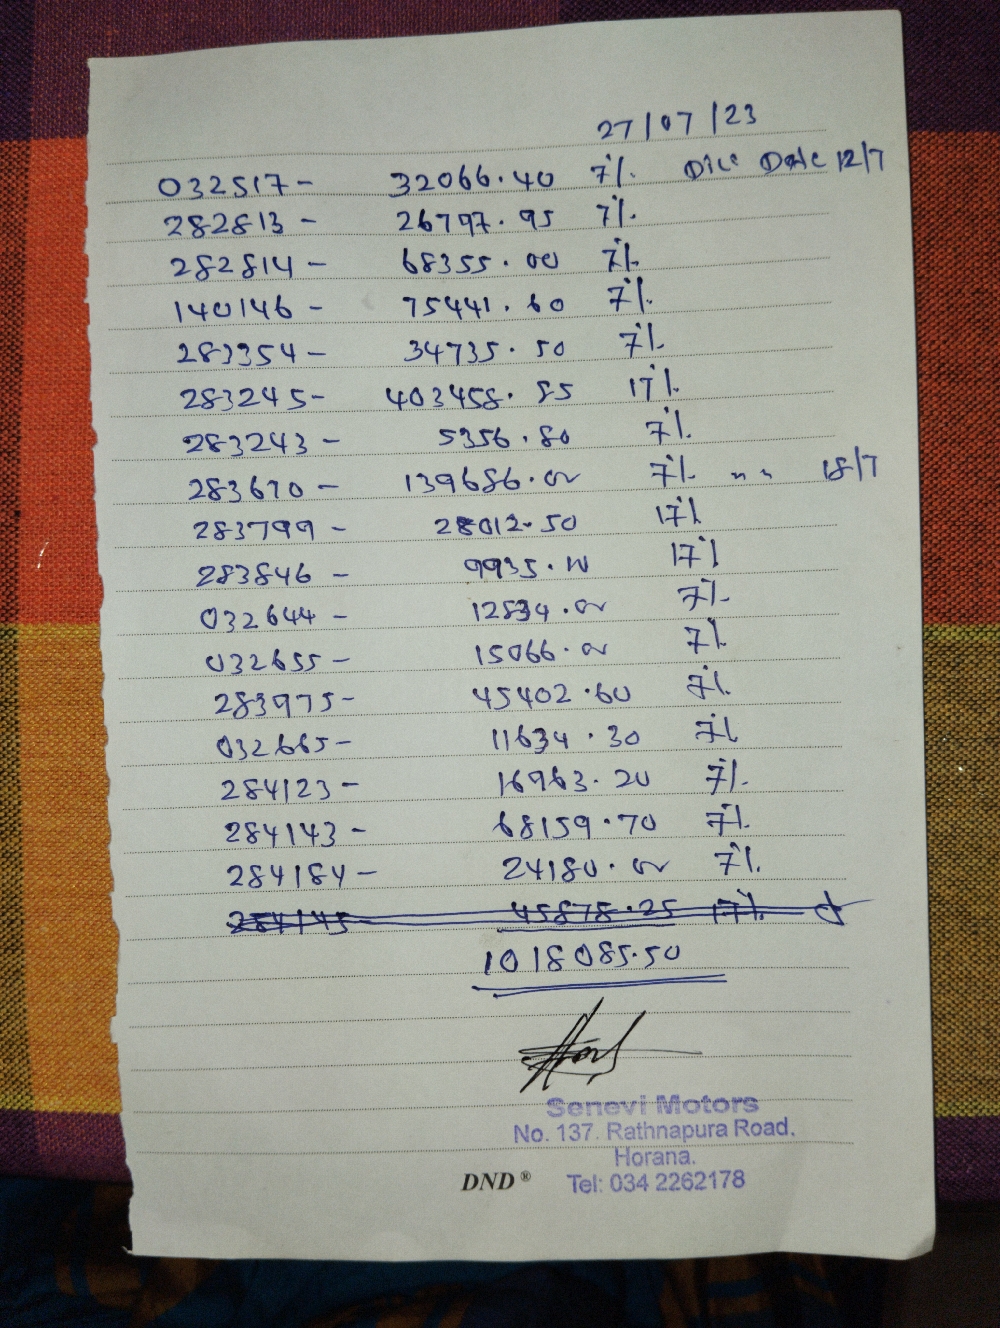 27/07/23
032517- 32066.40 7%. Date 12/7
282813 - 26797.95 7%.
282814 - 68355.00 7%.
140146 - 75441.60 7%.
283354 - 34735.50 7%.
283245- 403458.85 17%.
283243 - 5356.80 7%.
283670 - 139686.00 7%. " " 18/7
283799 - 28012.50 17%
283846 - 9935.10 17%
032644 - 12834.00 7%.
032655 - 15066.00 7%.
283975- 45402.60 7%.
032665- 11634.30 7%
284123 - 16963.20 7%.
284143 - 68159.70 7%.
284184 - 24180.00 7%.
284145 45878.25 17%.
1018085.50
Senevi Motors
No. 137. Rathnapura Road,
Horana.
DND® Tel: 034 2262178